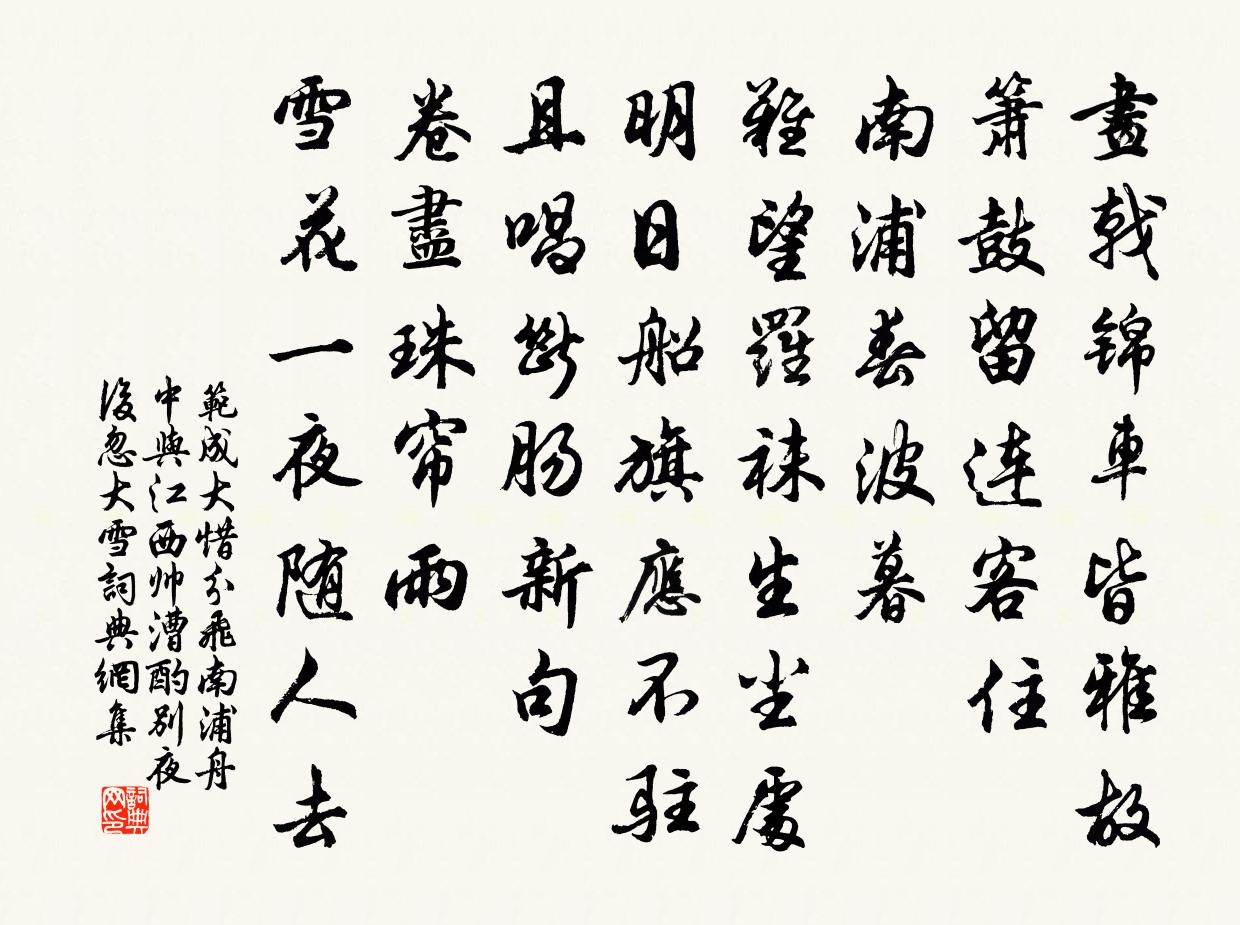 畫戟锦車皆雅故
簫鼓留連客住
南浦春波暮
難望羅袜生尘處
明日船旗應不駐
且唱斷肠新句
卷盡珠帘雨
雪花一夜随人去
範成大惜分飛南浦舟
中與江西帅漕酌別夜
後忽大雪詞典網集
詞典网印